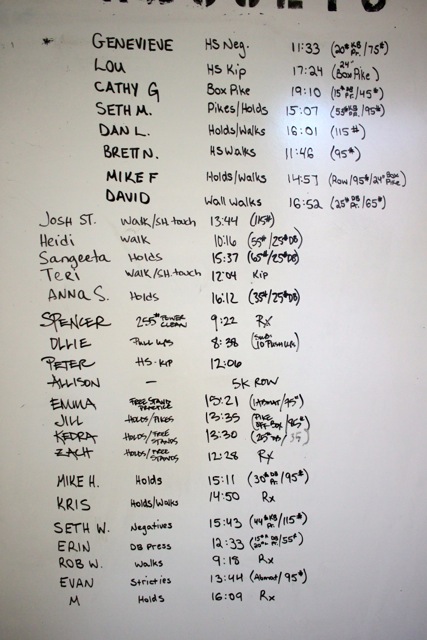 * GENEVIEVE HS Neg. 11:33 (20# KB Pr./75#)
LOU HS Kip 17:24 (24" Box Pike)
CATHY G Box Pike 19:10 (15# DB Pr./45#)
SETH M. Pikes/Holds 15:07 (53# KB Pr./95#)
DAN L. Holds/Walks 16:01 (115#)
BRETT N. HS Walks 11:46 (95#)
MIKE F Holds/Walks 14:57 (Row/95#/24" Box Pike)
DAVID Wall Walks 16:52 (25# DB/65#)
JOSH ST. Walk/SH.touch 13:44 (115#)
Heidi Walk 10:16 (55#/25#DB)
Sangeeta Holds 15:37 (65#/25#DB)
Teri Walk/SH.touch 12:04 Kip
ANNA S. Holds 16:12 (35#/25#DB)
SPENCER 255# POWER CLEAN 9:22 Rx
OLLIE Pull ups 8:38 (Sub: 10 Push Ups)
PETER HS-Kip 12:06
ALLISON — 5K ROW
EMMA FREE STAND PRACTICE 15:21 (1 Abmat/75#)
JILL HOLDS/PIKES 13:35 (PIKE OFF BOX/85#)
KEDRA HOLDS/FREE STANDS 13:30 (25# DB/35)
ZACH HOLDS/FREE STANDS 12:28 Rx
MIKE H. Holds 15:11 (30# DB Pr./95#)
KRIS Holds/Walks 14:50 Rx
SETH W. Negatives 15:43 (44# KB Pr./115#)
ERIN DB Press 12:33 (15# 20# DB Pr./55#)
ROB W. Walks 9:18 Rx
EVAN Stricties 13:44 (Abmat/95#)
M Holds 16:09 Rx